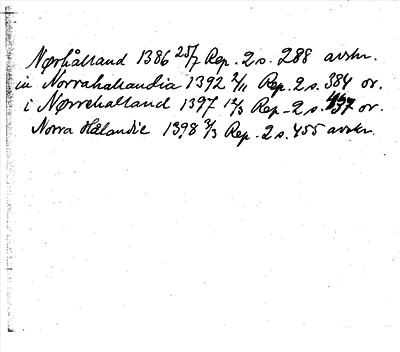 Nørhålland 1386 25/7 Rep. 2 s. 288 avskr.
in Norrahallandia 1392 2/11 Rep. 2 s. 384 or.
i Nørrehalland 1397 12/3 Rep. 2 s. 437 or.
Norra Hallandie 1398 3/3 Rep. 2 s. 455 avskr.